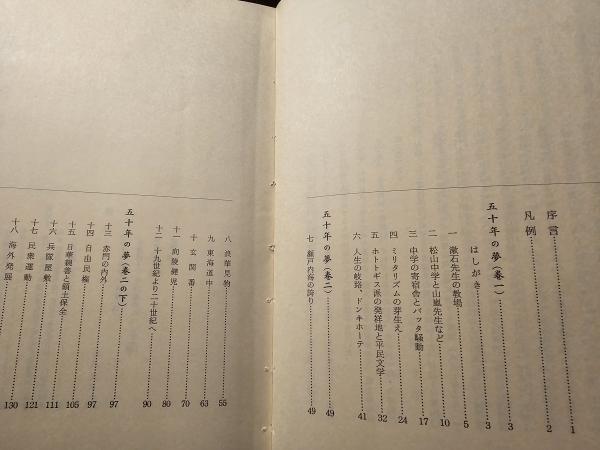 序言 1
凡例 2
五十年の夢(巻一) 3
はしがき 3
一 漱石先生の教場 5
二 松山中学と山嵐先生など 10
三 中学の寄宿舎とバッタ騒動 17
四 ミリタリズムの芽生え 24
五 ホトトギス派の発祥地と平民文学 32
六 人生の岐路、ドンキホーテ 41
五十年の夢(巻二) 49
七 瀬戸内海の誇り 49
八 浪華見物 55
九 東海道中 63
十 玄関番 70
十一 向陵健児 80
十二 十九世紀より二十世紀へ 90
五十年の夢(巻二の下) 97
十三 赤門の内外 97
十四 自由民権 97
十五 日華親善と領土保全 105
十六 兵隊屋敷 111
十七 民衆運動 121
十八 海外発展 130